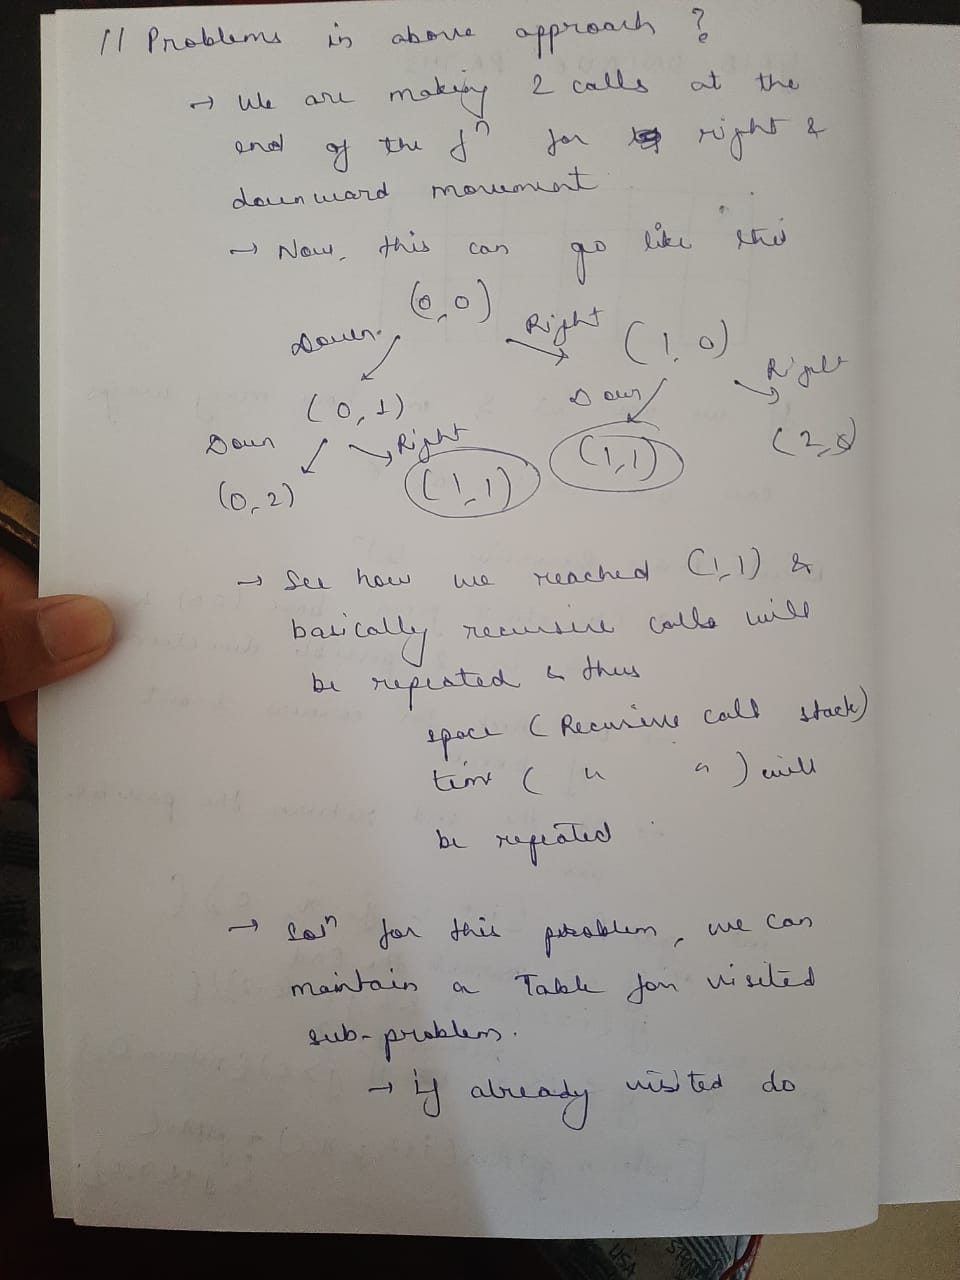 // Problems in above approach ?
→ We are making 2 calls at the
end of the fⁿ for right &
downward movement
→ Now, this can go like this
(0,0)
Down Right (1,0)
(0,1) Down Right
Down Right (1,1) (2,0)
(0,2) (1,1)
→ See how we reached (1,1) &
basically recursive calls will
be repeated & thus
space (Recursive call stack)
time ( " " ) will
be repeated
→ Solⁿ for this problem, we can
maintain a Table for visited
sub-problem.
→ if already visited do